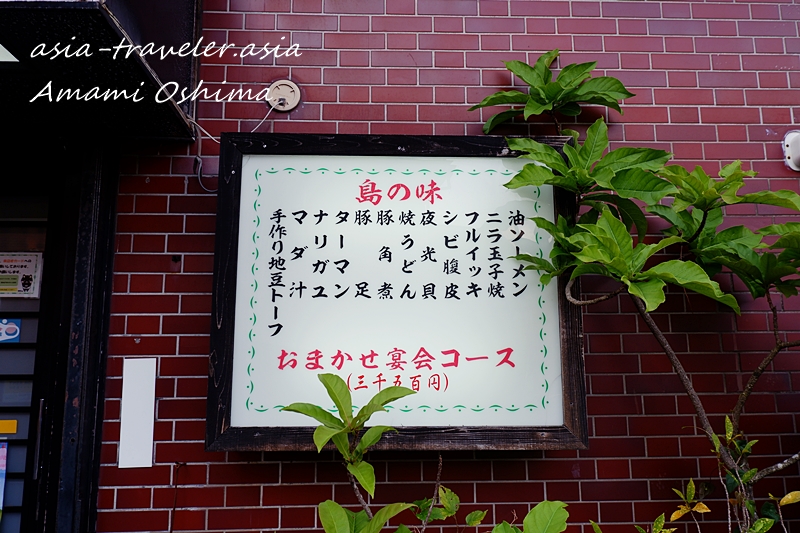 asia-traveler.asia
Amami Oshima
島の味
油ソーメン
ニラ玉子焼
フルイッキ
シビ腹皮
夜光貝
焼うどん
豚角煮
豚足
ターマン
ナリガユ
マダ汁
手作り地豆トーフ
おまかせ宴会コース
(三千五百円)